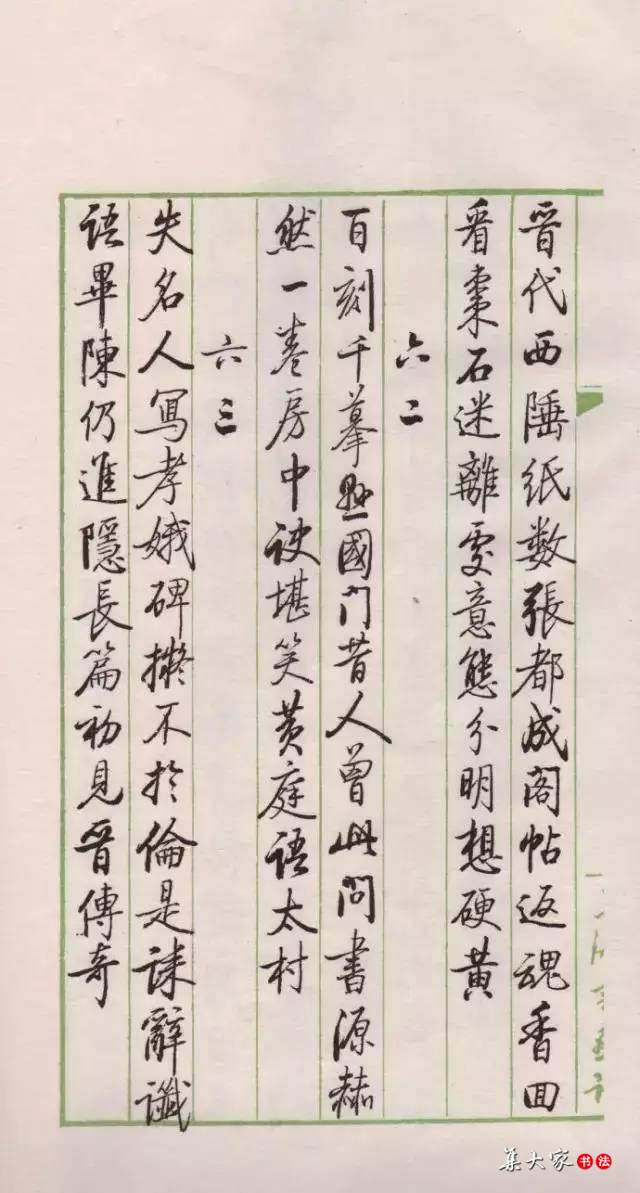 晉代西陲紙数張都成阁帖返魂香回
看棗石迷離處意態分明想硬黄
六二
百刻千摹懸國門昔人曾此問書源赫
然一卷房中訣堪笑黄庭語太村
六三
失名人寫孝娥碑擬不於倫是誄辭讖
語畢陳仍進隱長篇初見晉傳奇
集大家书法